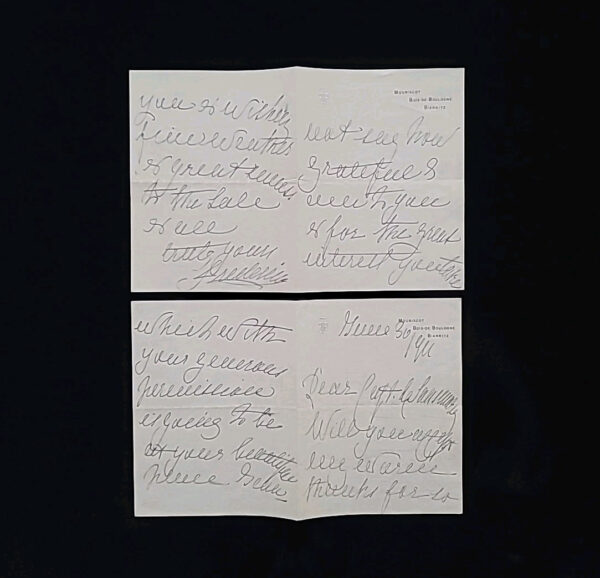 you & wishing
fine weather
& great success
to the Sale
& all
truly yours
Frederica
MOURISCOT
BOIS-DE BOULOGNE
BIARRITZ
not say how
grateful I
am to you
& for the great
interest you take
which with
your generous
permission
is going to be
at your beautiful
home I can
MOURISCOT
BOIS-DE BOULOGNE
BIARRITZ
June 30
1911
Dear Capt.
Will you accept
my warm
thanks for so